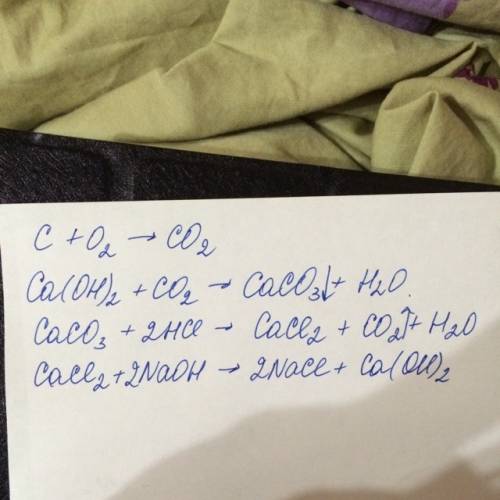 C + O₂ → CO₂
Ca(OH)₂ + CO₂ → CaCO₃↓ + H₂O.
CaCO₃ + 2HCl → CaCl₂ + CO₂↑ + H₂O
CaCl₂ + 2NaOH → 2NaCl + Ca(OH)₂